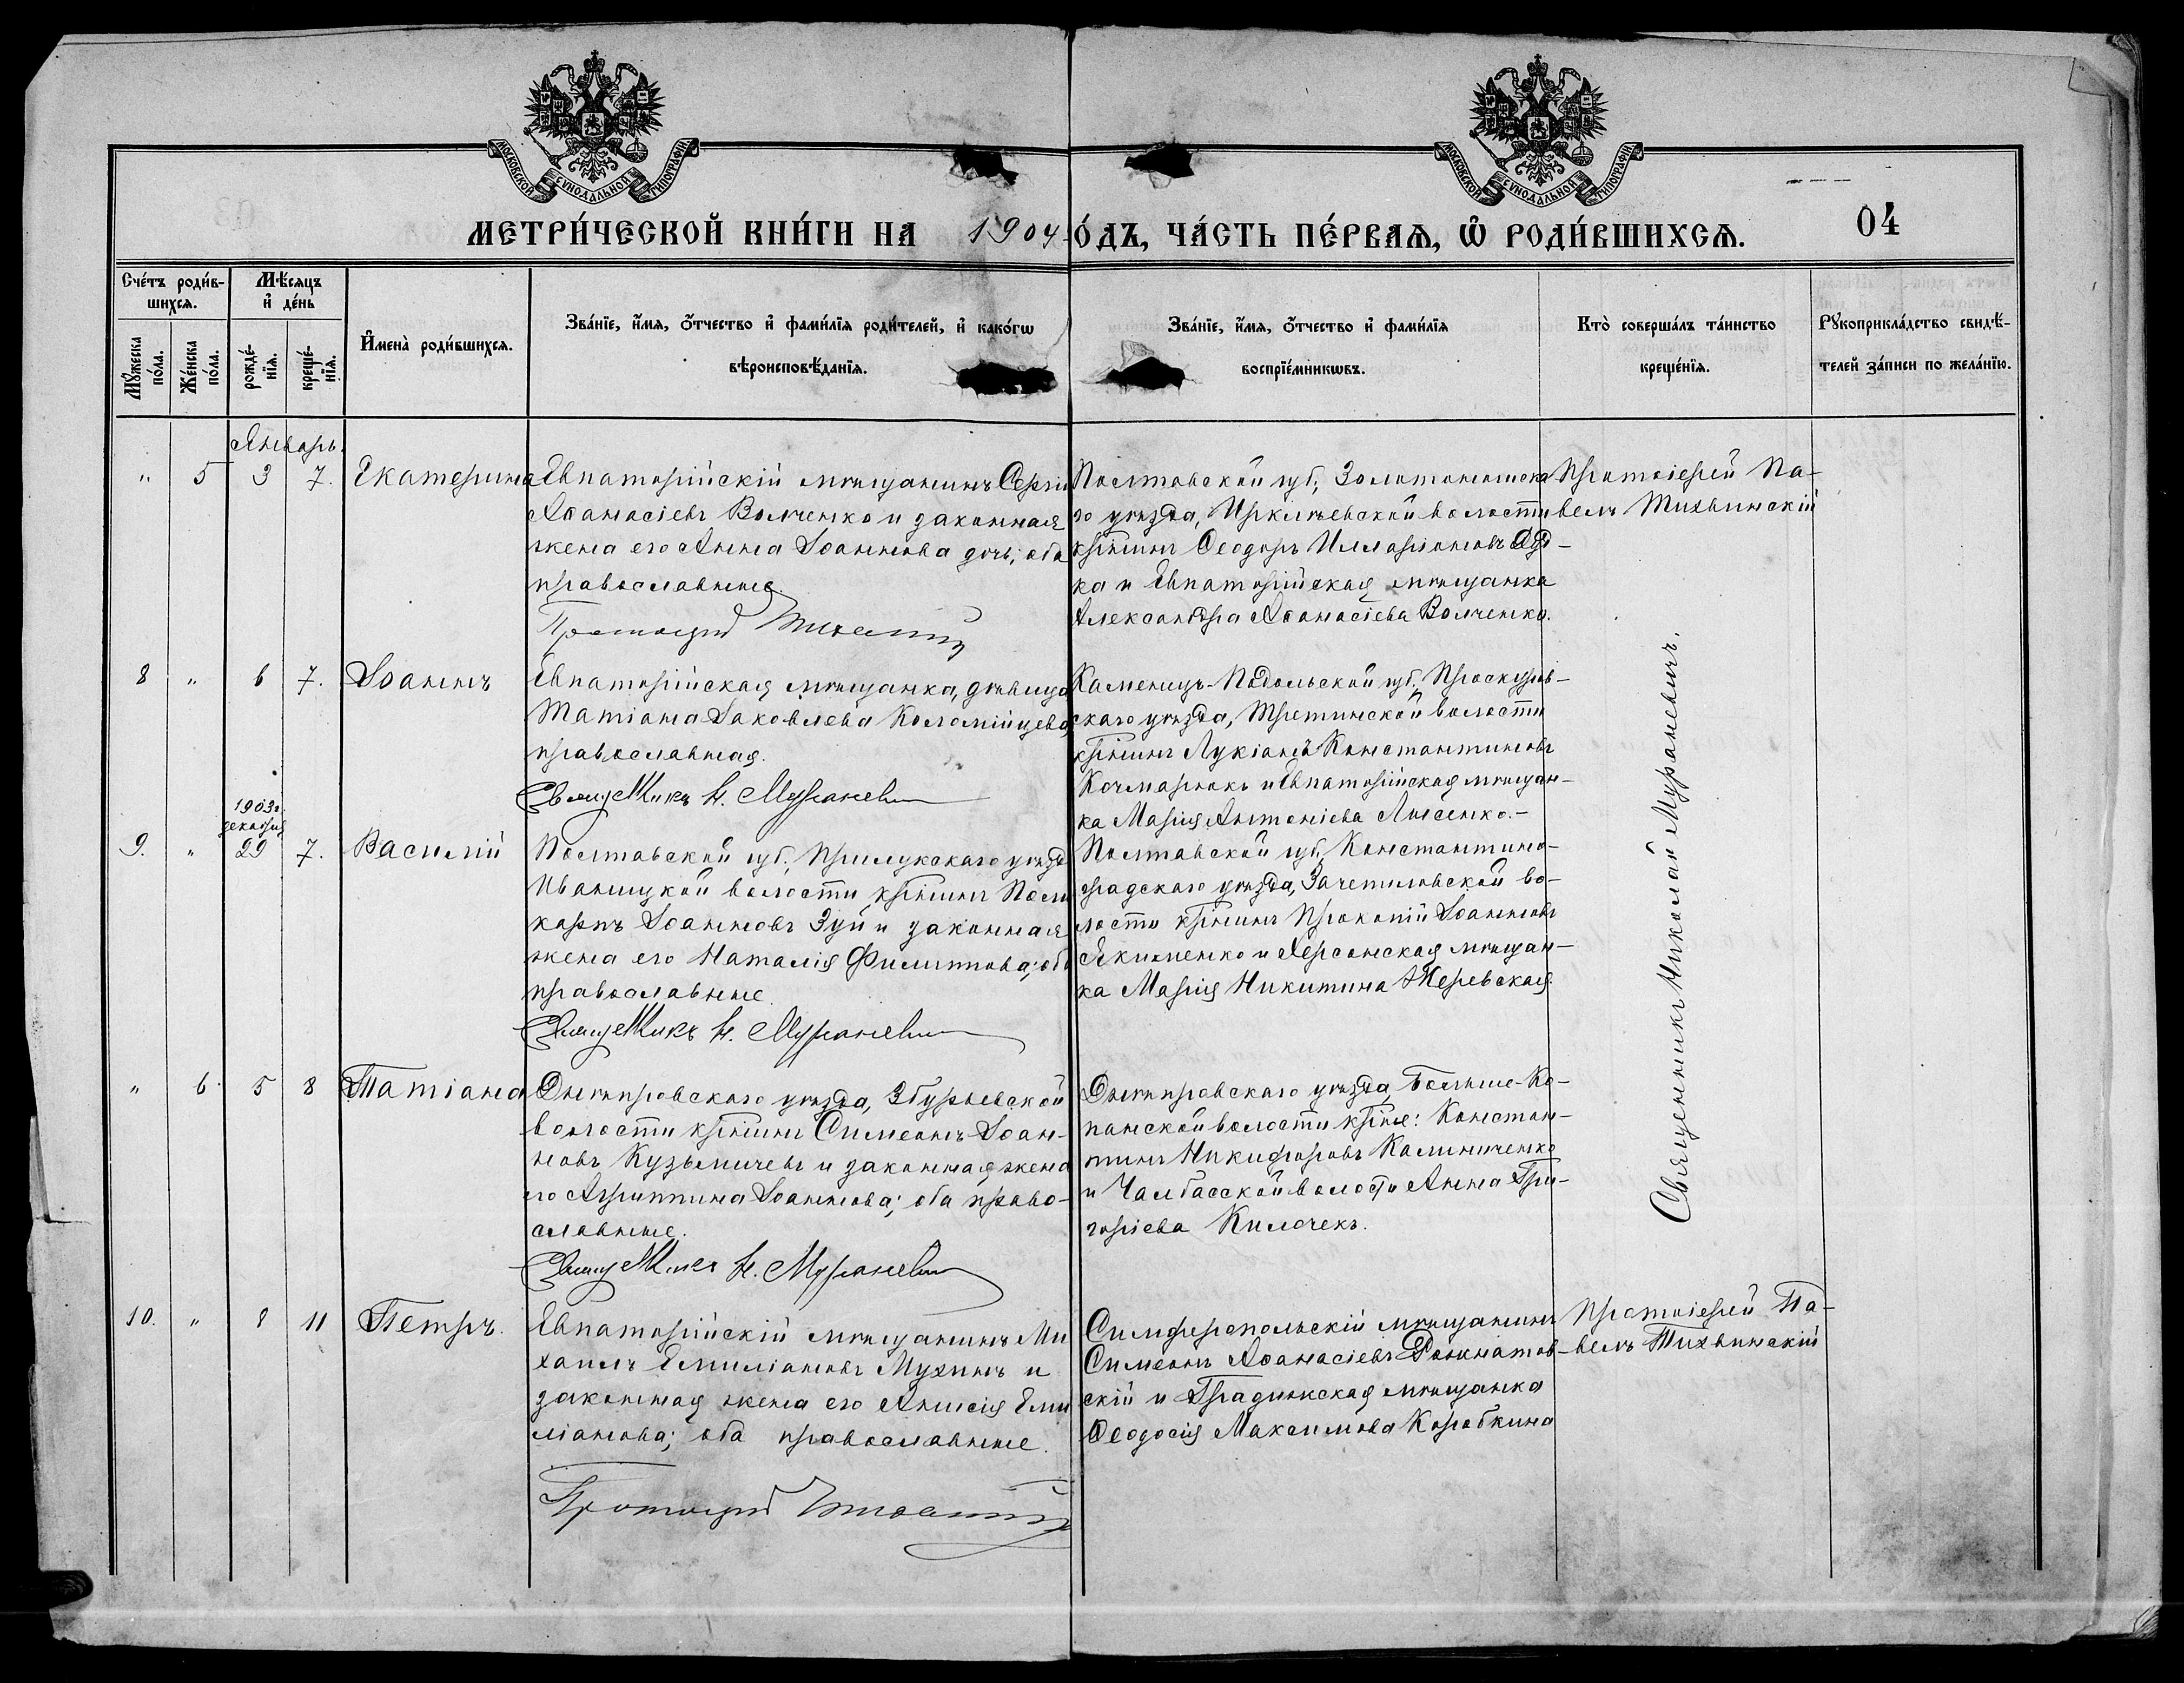 МОСКОВСКОЙ СѴНОДАЛЬНОЙ ТИПОГРАФІИ
МОСКОВСКОЙ СѴНОДАЛЬНОЙ ТИПОГРАФІИ
МЕТРИ́ЧЕСКОЙ КНИ́ГИ НА 1904 О́ДЪ, ЧА́СТЬ ПЕ́РВАѦ, Ѽ РОДИ́ВШИХСѦ.
04
Сче́тъ роди́в-
шихсѧ.
Мѣ́сѧцъ
и҆ де́нь
Мꙋ́жеска
по́ла.
Же́нска
по́ла.
рожде́-
нїѧ.
креще́-
нїѧ.
И҆мена̀ роди́вшихсѧ.
Зва́нїе, и҆́мѧ, ѻ҆́тчество и҆ фами́лїѧ роди́телей, и҆ како́гѡ
вѣроисповѣ́данїѧ.
Зва́нїе, и҆́мѧ, ѻ҆́тчество и҆ фами́лїѧ
воспрїе́мникѡвъ.
Кто̀ соверша́лъ та́инство
креще́нїѧ.
Рꙋкоприкла́дство свидѣ́-
телей за́писи по жела́нїю.
Январь.
" 5 3 7. Екатерина
Евпаторійскій мѣщанинъ Сергій
Аѳанасіевъ Волченко и законная
жена его Анна Іоаннова дочь; оба
православные.
Протоіерей Тихвинскій
Полтавской губ., Золотоношска
го уѣзда, Иркліевской волости
крѣнинъ Ѳеодоръ Илларіоновъ
ка и Евпаторійская мѣщанка
Александра Аѳанасіева Волченко.
Протоіерей Па-
велъ Тихвинскій
8 " 6 7. Іоаннъ
Евпаторійская мѣщанка, дѣвица
Татіана Іаковлева Коломійцева,
православная.
Священникъ Н. Мураневичъ
Каменецъ-Подольской губ., Проскуров-
скаго уѣзда, Третинской волости
крѣнинъ Лукіанъ Константиновъ
Кочмарюкъ и Евпаторійская мѣщан-
ка Марія Антоніева Лысенко.-
1903г.
декабря
9. " 29 7. Василій
Полтавской губ., Прилукскаго уѣзда
Иваницкой волости крѣнинъ Поли
карпъ Іоанновъ Зуй и законная
жена его Наталія Филиппова; оба
православные.
Священникъ Н. Мураневичъ
Полтавской губ., Константино-
градскаго уѣзда, Зачепиловской во-
лости крѣнинъ Прокопій Іоанновъ
Якименко и Херсонская мѣщан-
ка Марія Никитина Жеревская.
Священникъ Николай Мураневичъ.
" 6 5 8 Татіана
Днѣпровскаго уѣзда, Збурьевской
волости крѣнинъ Симеонъ Іоан-
новъ Кузьмичевъ и законная жена
его Агриппина Іоаннова; оба право-
славные.
Священникъ Н. Мураневичъ
Днѣпровскаго уѣзда, Больше-Ко-
панской волости крѣне: Констан-
тинъ Никифоровъ Калиниченко
и Чалбасской волости Анна Гри-
горіева Килочекъ.
10. " 8 11 Петръ.
Евпаторійскій мѣщанинъ Ми
хаилъ Емиліановъ Мухинъ и
законная жена его Анисія Еми
ліанова; оба православные.
Протоіерей Тихвинскій
Симферопольскій мѣщанинъ
Симеонъ Аѳанасіевъ
скій и Градижская мѣщанка
Ѳеодосія Максимова Коробкина
Протоіерей Па-
велъ Тихвинскій